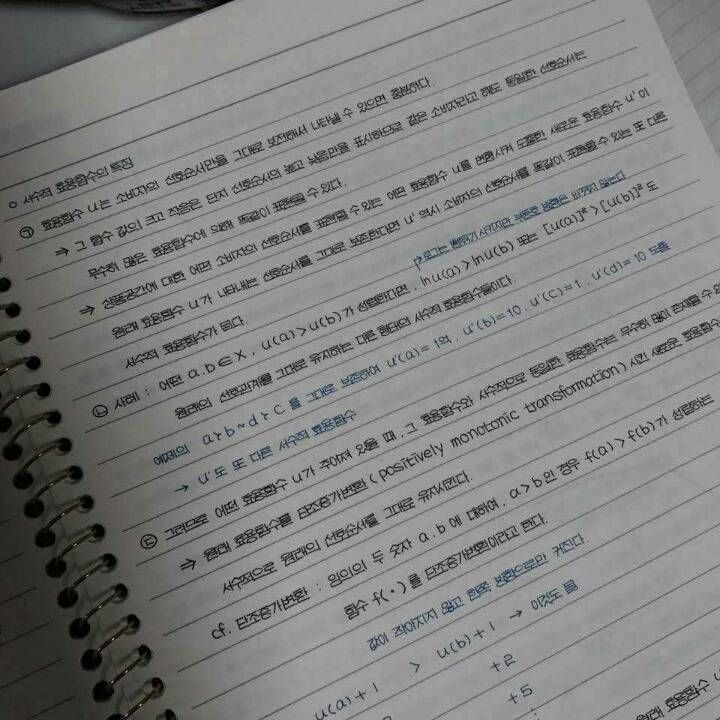 ○ 서수적 효용함수의 특징
㉠ 효용함수 u는 소비자의 선호순서만을 그대로 보전해서 나타낼 수 있으면 충분하다.
⇒ 그 함수 값의 크고 작음은 단지 선호순서의 높고 낮음만을 표시하므로 같은 소비자라고 해도 동일한 선호순서는
무수히 많은 효용함수에 의해 똑같이 표현될 수 있다.
⇒ 상품공간에 대한 어떤 소비자의 선호순서를 표현할 수 있는 어떤 효용함수 u를 변형시켜 도출한 새로운 효용함수 u'이
원래 효용함수 u가 나타내는 선호순서를 그대로 보존한다면 u' 역시 소비자의 선호순서를 똑같이 표현할 수 있는 또 다른
서수적 효용함수가 된다.
로그는 변화시키지만 부등호 방향은 바뀌지 않는다
㉡ 사례 : 어떤 a.b∈X, u(a)>u(b)가 성립한다면, lnu(a)>lnu(b) 또는 [u(a)]²>[u(b)]²도
원래의 선호관계를 그대로 유지하는 다른 형태의 서수적 효용함수들이다.
예제의 a≻b~d≻c 을 그대로 보존하여 u'(a)=19, u'(b)=10, u'(c)=1, u'(d)=10 도출
→ u'도 또 다른 서수적 효용함수
㉢ 그러므로 어떤 효용함수 u가 주어져 있을 때, 그 효용함수와 서수적으로 동일한 효용함수는 무수히 많이 존재할 수
⇒ 원래 효용함수를 단조증가변환(positively monotonic transformation)시킨 새로운 효용함수
서수적으로 원래의 선호순서를 그대로 유지시킨다.
cf. 단조증가변환 : 임의의 두 숫자 a.b에 대하여, a>b인 경우 f(a)>f(b)가 성립하는
함수 f(·)를 단조증가변환이라고 한다.
값이 작아지지 않고 한쪽 방향으로만 커진다.
u(a)+1 > u(b)+1 → 이것도 됨
+2
+5
원래 효용함수 u